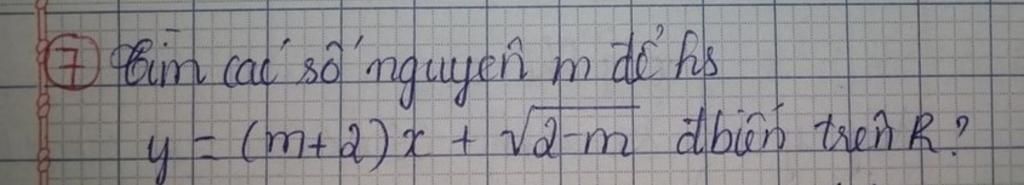 7 Tìm các số nguyên m để hs
y = (m+2)x + √2-m đbiến trên R?